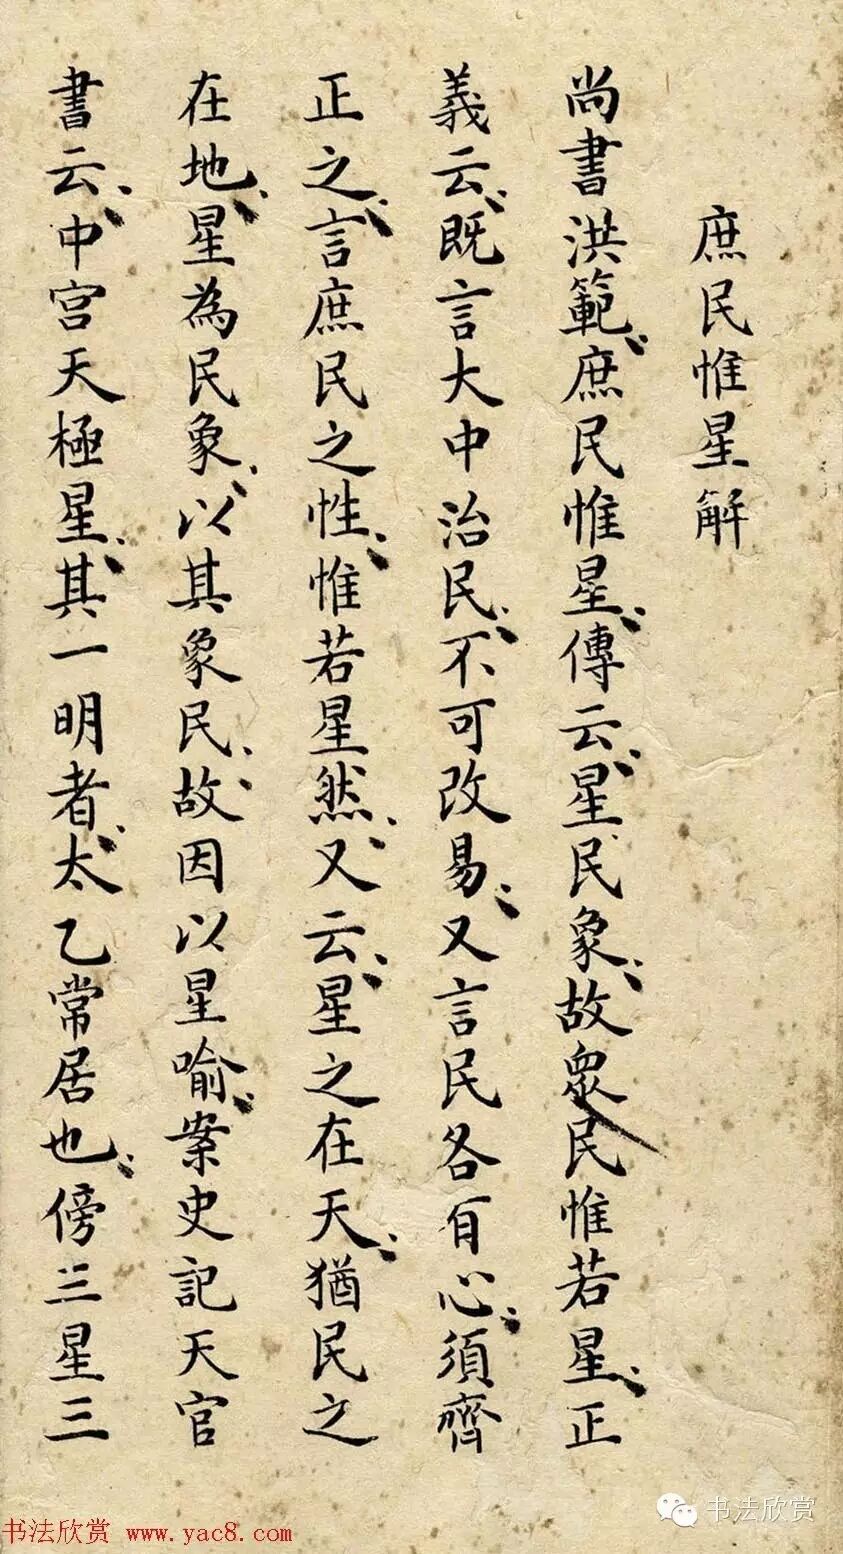 庶民惟星解
尚書洪範、庶民惟星、傳云、星民象、故衆民惟若星、正
義云、既言大中治民、不可改易、又言民各有心、須齊
正之、言庶民之性、惟若星然、又云、星之在天、猶民之
在地、星為民象、以其象民、故因以星喻、案史記天官
書云、中宮天極星、其一明者、太乙常居也、傍三星三
书法欣赏
书法欣赏 www.yac8.com